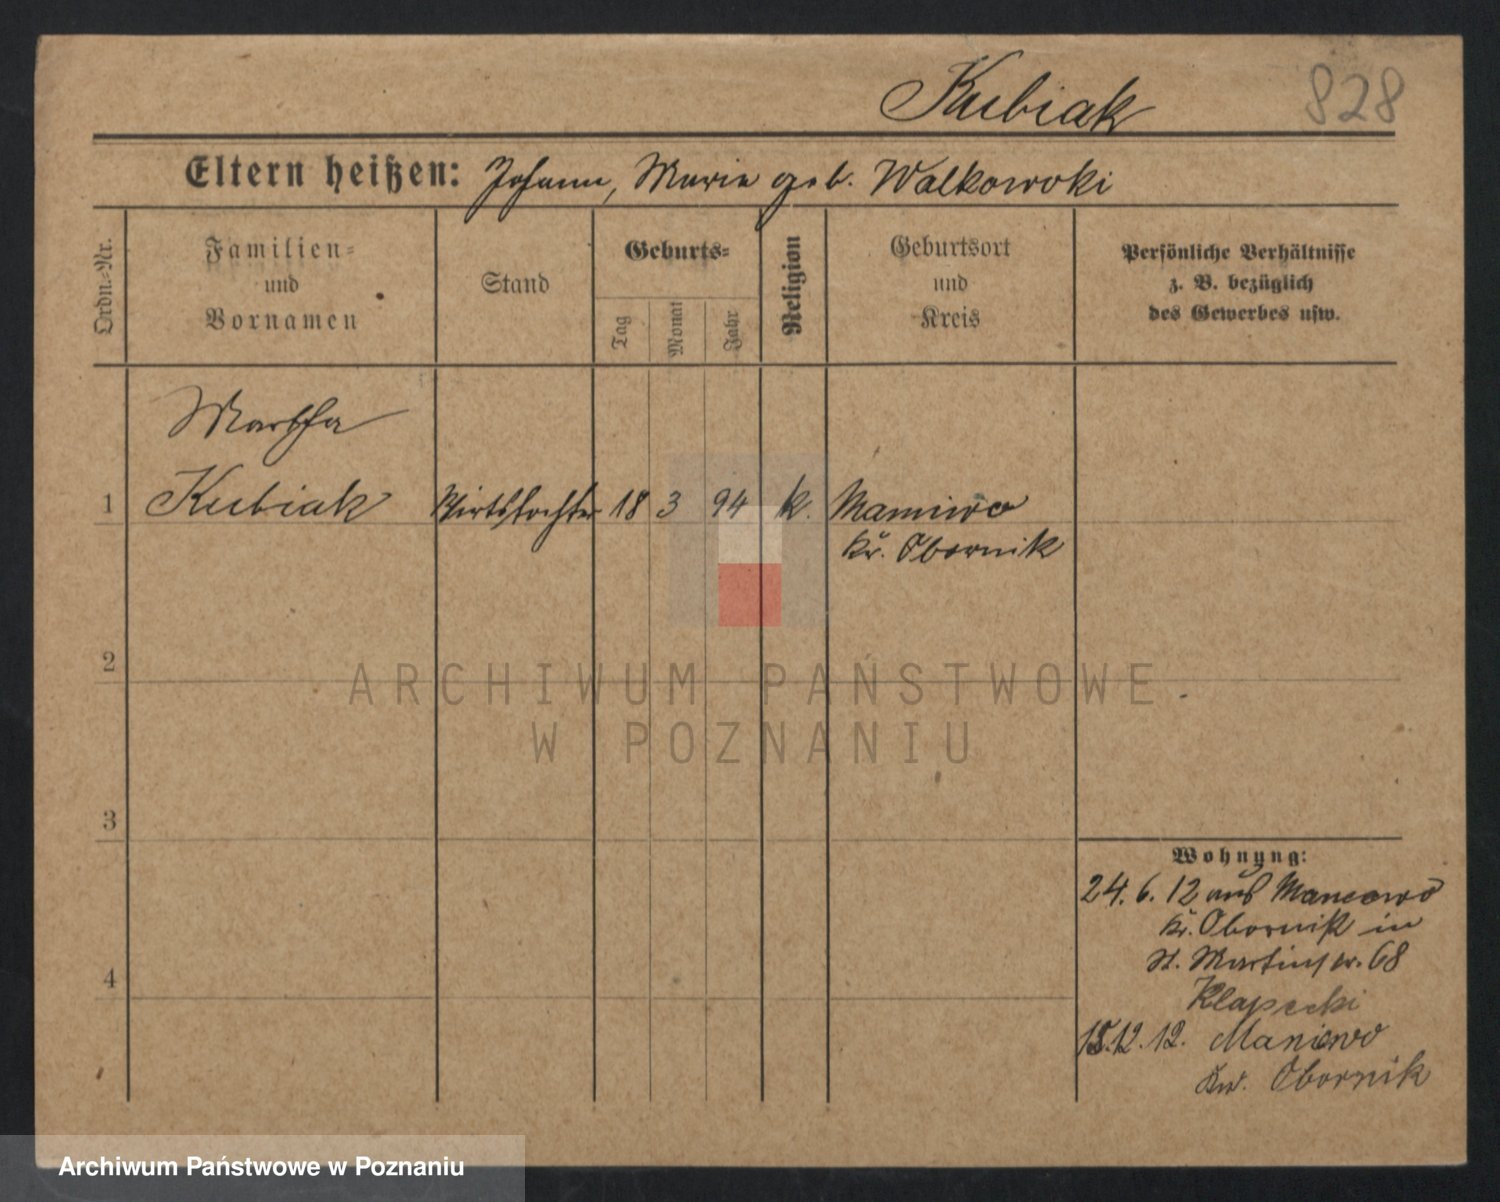 Kubiak
828
Eltern heißen: Johann, Marie geb. Walkowski
Ordn.=Nr.
Familien=
und
Vornamen
Stand
Geburts=
Tag
Monat
Jahr
Religion
Geburtsort
und
Kreis
Persönliche Verhältnisse
z. B. bezüglich
des Gewerbes usw.
Martha
1 Kubiak Wirtstochter 18 3 94 k. Maniewo
Kr. Obornik
2
3
4
Wohnung:
24. 6. 12 aus Maniewo
Kr. Obornik in
St. Martinstr. 68
15.12.12. Maniewo
Kr. Obornik
ARCHIWUM PAŃSTWOWE
W POZNANIU
Archiwum Państwowe w Poznaniu